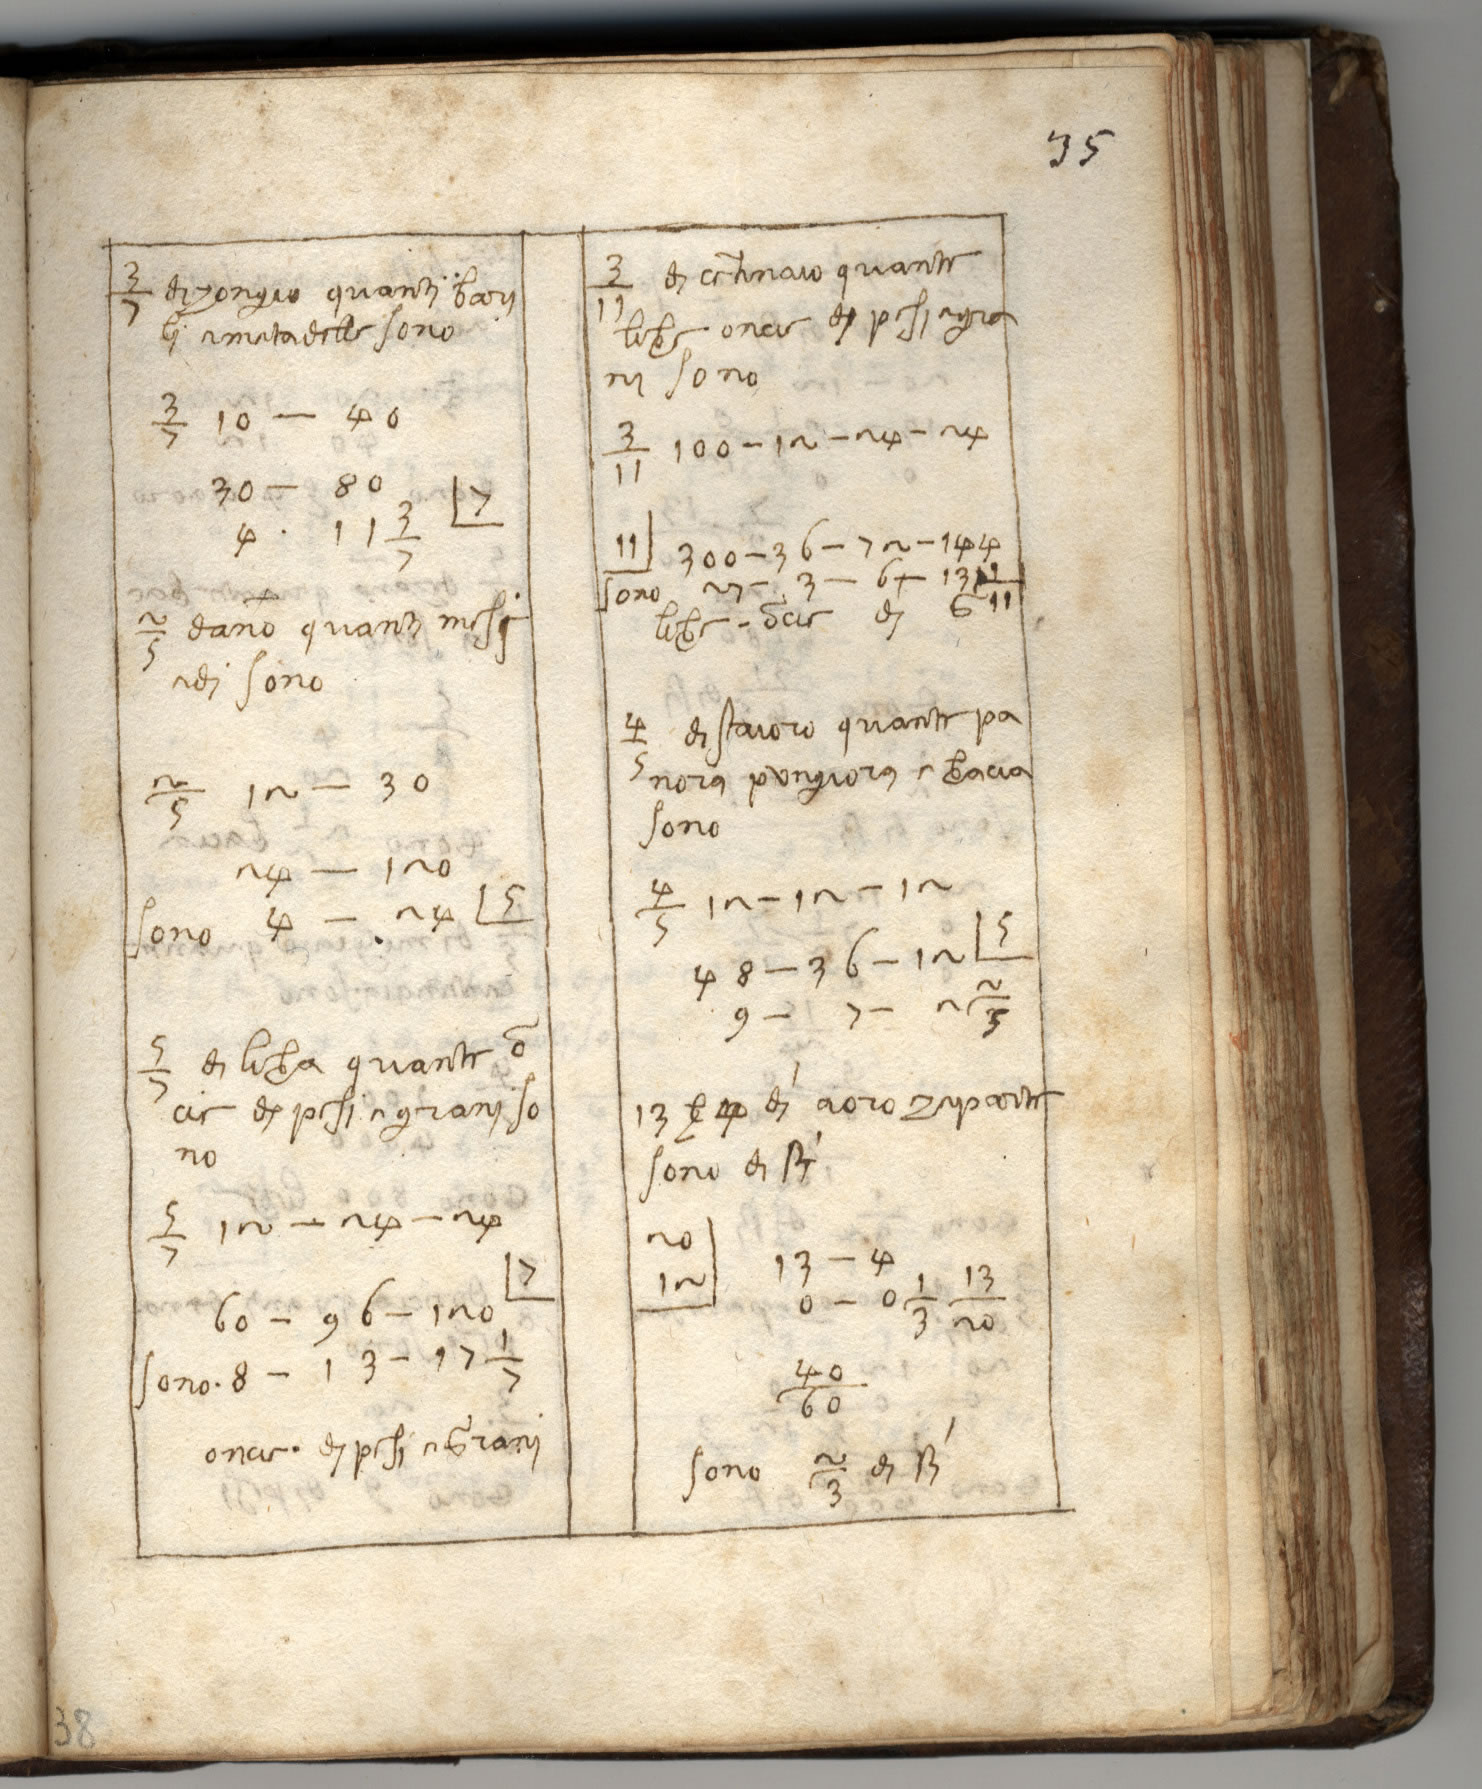 35
3/7 di congio quanti bari
li e metadelle sono
3/7 10 — 40
30 — 80 | 7
4 . 11 3/7
2/5 danō quanti mesi
e di sono
2/5 12 — 30
24 — 120
sono 4 — 24 | 5
5/7 di libra quante ō
cie di pesi e grani so
no
5/7 12 — 24 — 24
60 — 96 — 120 | 7
sono . 8 — 13 — 17 1/7
oncie . di pesi e grani
3/11 di cētinaio quante
libre oncie di pesi e gra
ni sono
3/11 100 — 12 — 24 — 24
11 | 300 — 36 — 72 — 144
sono 27 — 3 — 6 — 13 1/11
libre — ōcie di G
4/5 di staioro quante pa
nora pugniora e bracia
sono
4/5 12 — 12 — 12
48 — 36 — 12 | 5
9 — 7 — 2 2/5
13 4 di aoro parte
sono di
20
12 | 13 — 4
0 — 0 1/3 13/20
40/60
sono 2/3 di
38